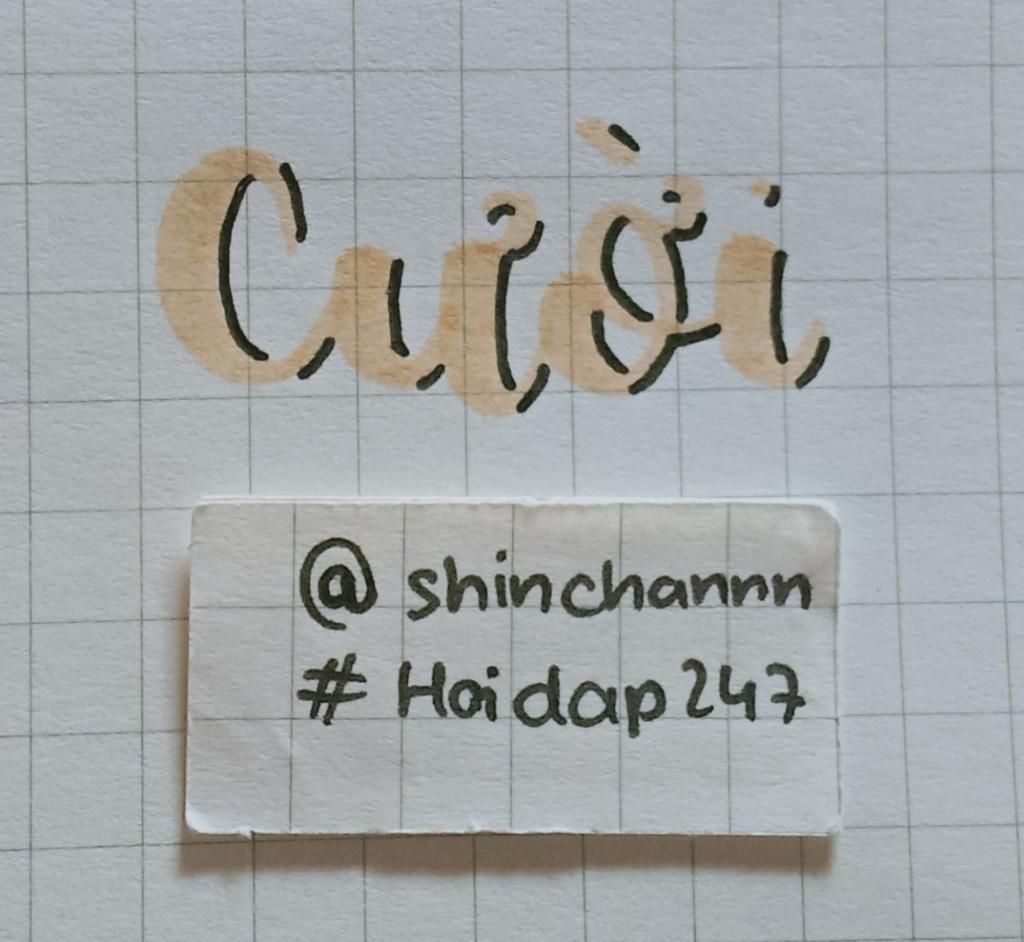 Cười
@shinchannn
#Hoidap247